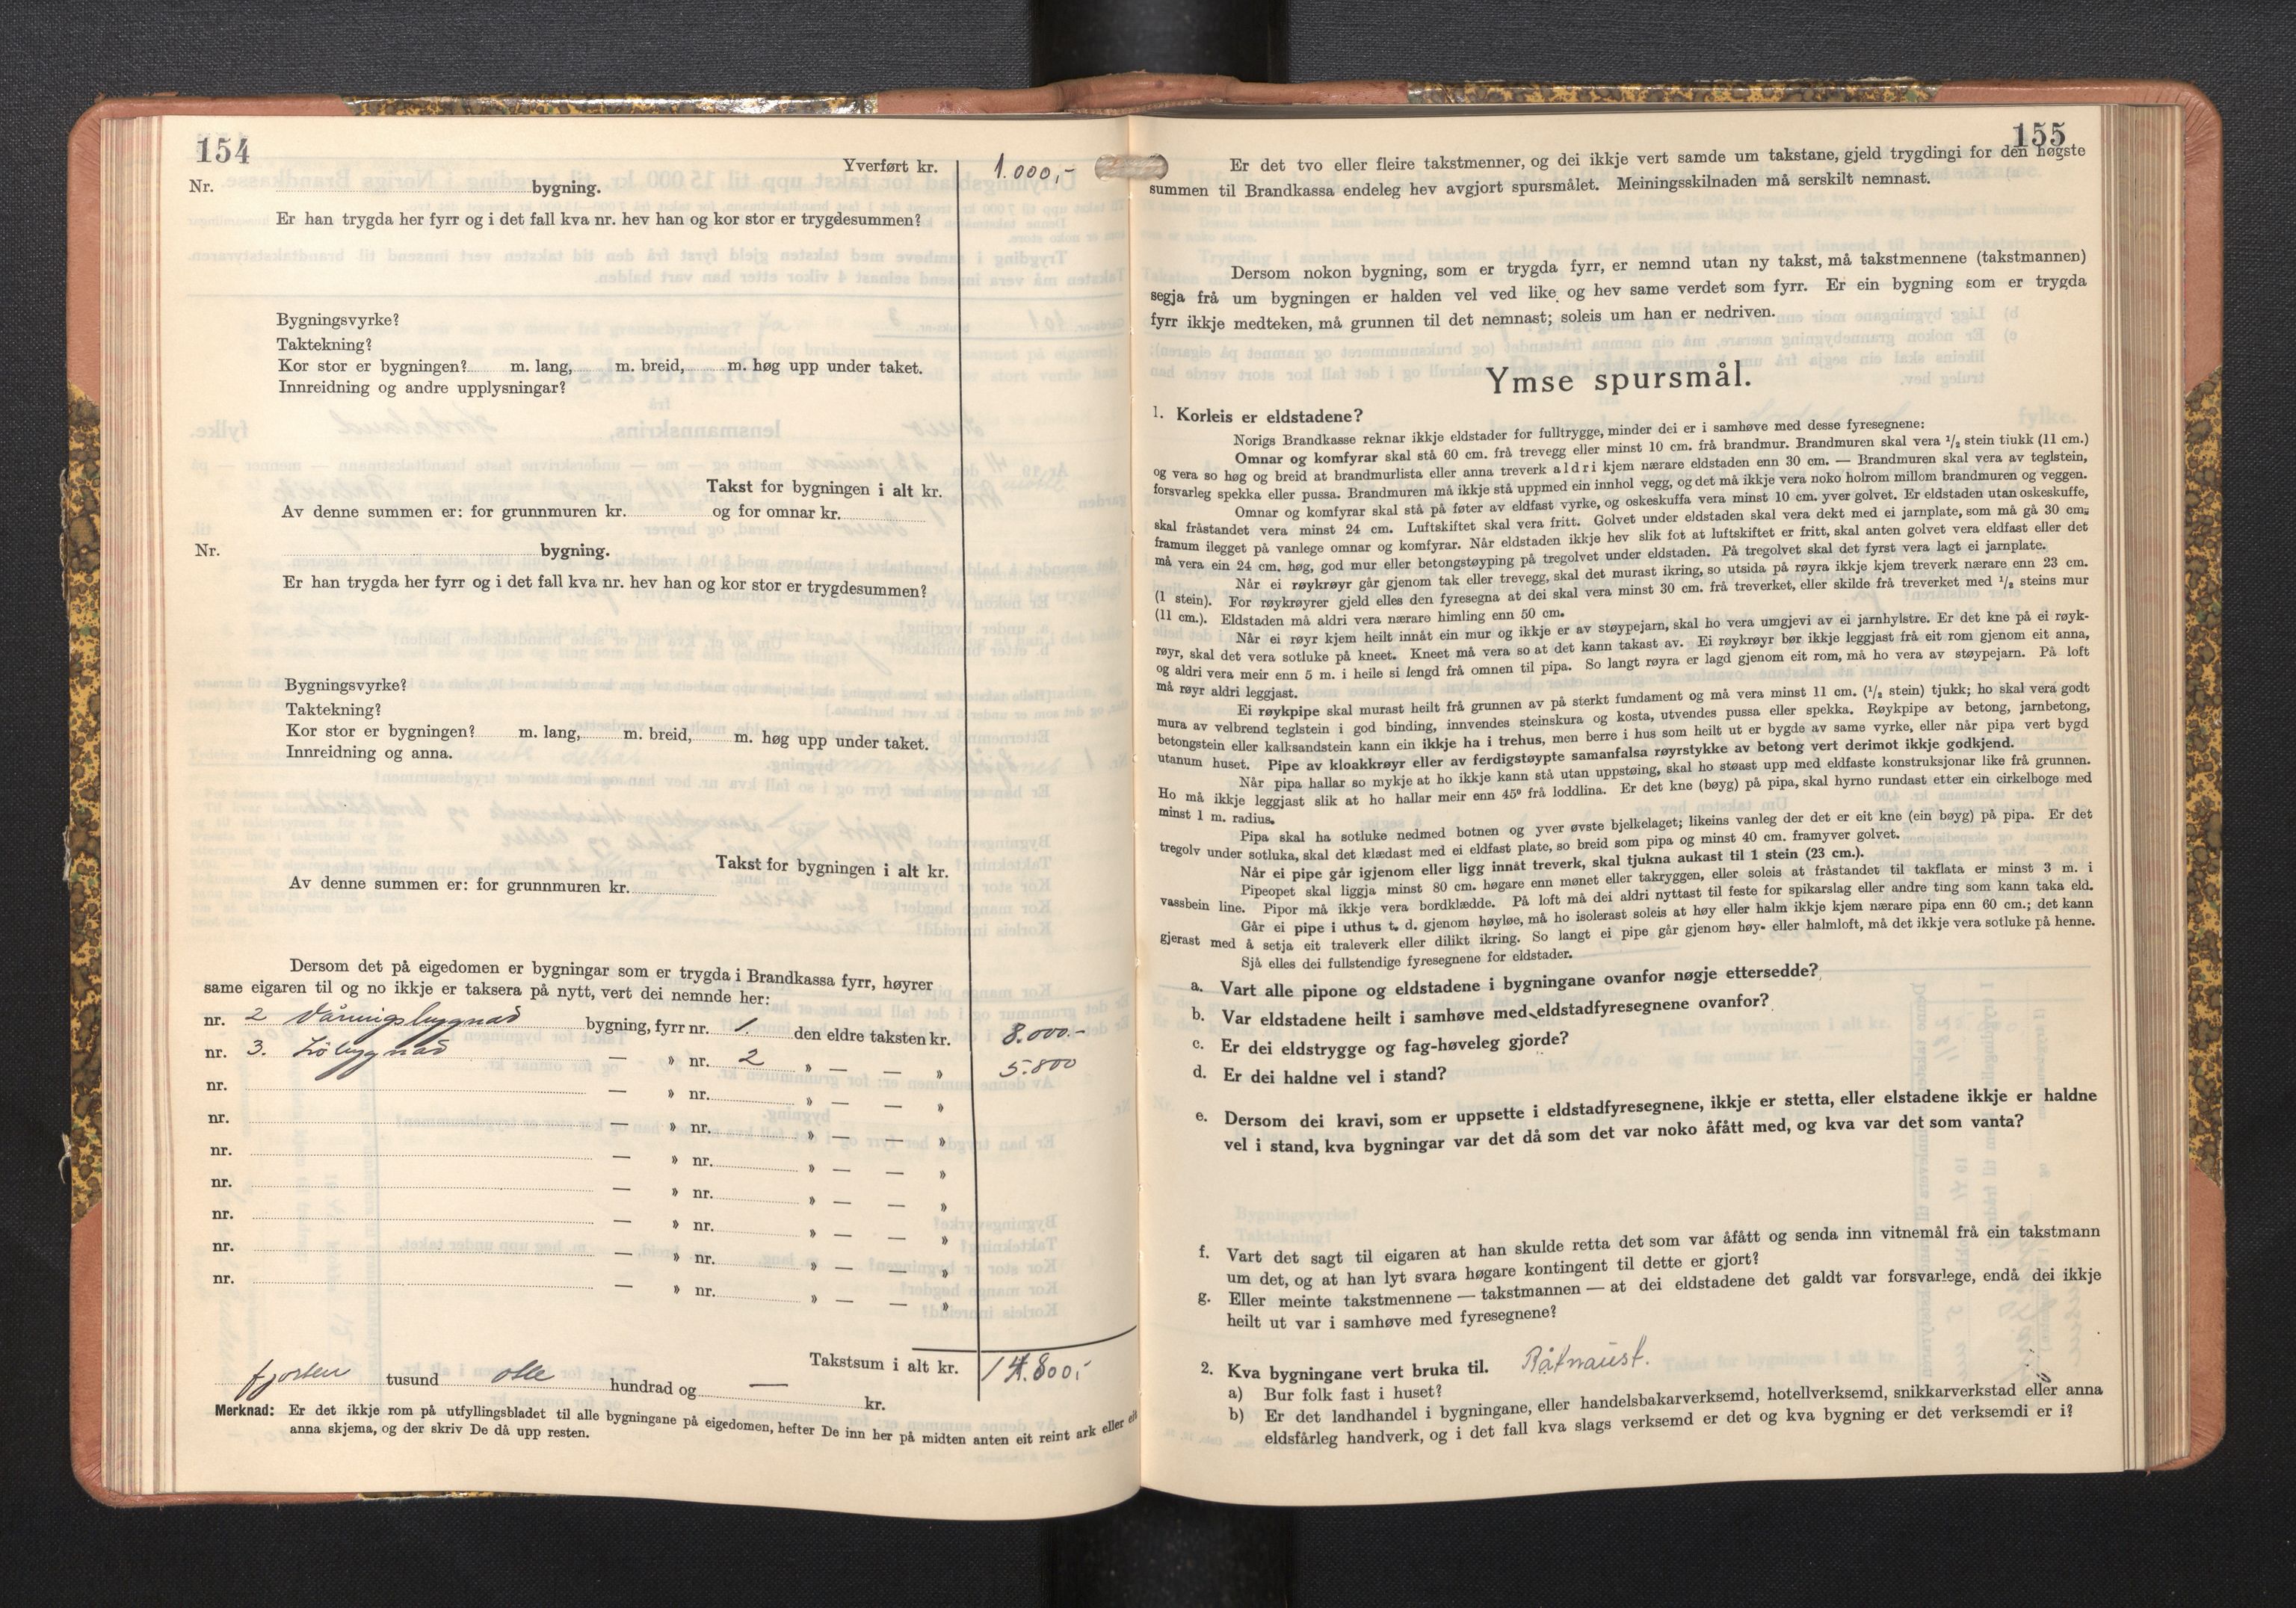 154
Yverført kr. 1.000,-
Nr. bygning.
Er han trygda her fyrr og i det fall kva nr. hev han og kor stor er trygdesummen?
Bygningsvyrke?
Taktekning?
Kor stor er bygningen? m. lang, m. breid, m. høg upp under taket.
Innreidning og andre upplysningar?
Takst for bygningen i alt kr.
Av denne summen er: for grunnmuren kr. og for omnar kr.
Nr. bygning.
Er han trygda her fyrr og i det fall kva nr. hev han og kor stor er trygdesummen?
Bygningsvyrke?
Taktekning?
Kor stor er bygningen? m. lang, m. breid, m. høg upp under taket.
Innreidning og anna.
Takst for bygningen i alt kr.
Av denne summen er: for grunnmuren kr.
Dersom det på eigedomen er bygningar som er trygda i Brandkassa fyrr, høyrer
same eigaren til og no ikkje er taksera på nytt, vert dei nemnde her:
nr. 2 Våningsbygnad bygning, fyrr nr. 1. den eldre taksten kr. 8.000.-
nr. 3. Löbygnad — » nr. 2 » — — » 5.800
nr. — » nr. » — — »
nr. — » nr. » — — »
nr. — » nr. » — — »
nr. — » nr. » — — »
nr. — » nr. » — — »
nr. — » nr. » — — »
nr. — » nr. » — — »
Takstsum i alt kr. 14.800,-
fjorten tusund otte hundrad og — kr.
Merknad: Er det ikkje rom på utfyllingsbladet til alle bygningane på eigedomen, hefter De inn her på midten anten eit reint ark eller eit
anna skjema, og der skriv De då upp resten.
155
Er det tvo eller fleire takstmenner, og dei ikkje vert samde um takstane, gjeld trygdingi for den høgste
summen til Brandkassa endeleg hev avgjort spursmålet. Meiningsskilnaden må serskilt nemnast.
Dersom nokon bygning, som er trygda fyrr, er nemnd utan ny takst, må takstmennene (takstmannen)
segja frå um bygningen er halden vel ved like og hev same verdet som fyrr. Er ein bygning som er trygda
fyrr ikkje medteken, må grunnen til det nemnast; soleis um han er nedriven.
Ymse spursmål.
1. Korleis er eldstadene?
Norigs Brandkasse reknar ikkje eldstader for fulltrygge, minder dei er i samhøve med desse fyresegnene:
Omnar og komfyrar skal stå 60 cm. frå trevegg eller minst 10 cm. frå brandmur. Brandmuren skal vera 1/2 stein tiukk (11 cm.)
og vera so høg og breid at brandmurlista eller anna treverk aldri kjem nærare eldstaden enn 30 cm. — Brandmuren skal vera av teglstein,
forsvarleg spekka eller pussa. Brandmuren må ikkje stå uppmed ein innhol vegg, og det må ikkje vera noko holrom millom brandmuren og veggen.
Omnar og komfyrar skal stå på føter av eldfast vyrke, og oskeskuffa vera minst 10 cm. yver golvet. Er eldstaden utan oskeskuffe,
skal fråstandet vera minst 24 cm. Luftskiftet skal vera fritt. Golvet under eldstaden skal vera dekt med ei jarnplate, som må gå 30 cm.
framum ilegget på vanlege omnar og komfyrar. Når eldstaden ikkje hev slik fot at luftskiftet er fritt, skal anten golvet vera eldfast eller det
må vera ein 24 cm. høg, god mur eller betongstøyping på tregolvet under eldstaden. På tregolvet skal det fyrst vera lagt ei jarnplate.
Når ei røykrøyr går gjenom tak eller trevegg, skal det murast ikring, so utsida på røyra ikkje kjem treverk nærare enn 23 cm.
(1 stein). For røykrøyrer gjeld elles den fyresegna at dei skal vera minst 30 cm. frå treverket, eller skilde frå treverket med 1/2 steins mur
(11 cm.). Eldstaden må aldri vera nærare himling enn 50 cm.
Når ei røyr kjem heilt innåt ein mur og ikkje er av støypejarn, skal ho vera umgjevi av ei jarnhylstre. Er det kne på ei røyk-
røyr, skal det vera sotluke på kneet. Kneet må vera so at det kann takast av. Ei røykrøyr bør ikkje leggjast frå eit rom gjenom eit anna,
og aldri vera meir enn 5 m. i heile si lengd frå omnen til pipa. So langt røyra er lagd gjenom eit rom, må ho vera av støypejarn. På loft
må røyr aldri leggjast.
Ei røykpipe skal murast heilt frå grunnen av på sterkt fundament og må vera minst 11 cm. (1/2 stein) tjukk; ho skal vera godt
mura av velbrend teglstein i god binding, innvendes steinskura og kosta, utvendes pussa eller spekka. Røykpipe av betong, jarnbetong,
betongstein eller kalksandstein kann ein ikkje ha i trehus, men berre i hus som heilt ut er bygde av same vyrke, eller når pipa vert bygd
utanum huset. Pipe av kloakkrøyr eller av ferdigstøypte samanfalsa røyrstykke av betong vert derimot ikkje godkjend.
Når pipa hallar so mykje at ho ikkje kann stå utan uppstøing, skal ho støast upp med eldfaste konstruksjonar like frå grunnen.
Ho må ikkje leggjast slik at ho hallar meir enn 45° frå loddlina. Er det kne (bøyg) på pipa, skal hyrno rundast etter ein cirkelboge med
minst 1 m. radius.
Pipa skal ha sotluke nedmed botnen og yver øvste bjelkelaget; likeins vanleg der det er eit kne (ein bøyg) på pipa. Er det
tregolv under sotluka, skal det klædast med ei eldfast plate, so breid som pipa og minst 40 cm. framyver golvet.
Når ei pipe går igjenom eller ligg innåt treverk, skal tjukna aukast til 1 stein (23 cm.).
Pipeopet skal liggja minst 80 cm. høgare enn mønet eller takryggen, eller soleis at fråstandet til takflata er minst 3 m. i
vassbein line. Pipor må ikkje vera bordklædde. På loft må dei aldri nyttast til feste for spikarslag eller andre ting som kann taka eld.
Går ei pipe i uthus t. d. gjenom høyløe, må ho isolerast soleis at høy eller halm ikkje kjem nærare pipa enn 60 cm.; det kann
gjerast med å setja eit traleverk eller dilikt ikring. So langt ei pipe går gjenom høy- eller halmloft, må det ikkje vera sotluke på henne.
Sjå elles dei fullstendige fyresegnene for eldstader.
a. Vart alle pipone og eldstadene i bygningane ovanfor nøgje ettersedde?
b. Var eldstadene heilt i samhøve med eldstadfyresegnene ovanfor?
c. Er dei eldstrygge og fag-høveleg gjorde?
d. Er dei haldne vel i stand?
e. Dersom dei kravi, som er uppsette i eldstadfyresegnene, ikkje er stetta, eller elstadene ikkje er haldne
vel i stand, kva bygningar var det då som det var noko åfått med, og kva var det som vanta?
f. Vart det sagt til eigaren at han skulde retta det som var åfått og senda inn vitnemål frå ein takstmann
um det, og at han lyt svara høgare kontingent til dette er gjort?
g. Eller meinte takstmennene — takstmannen — at dei eldstadene det galdt var forsvarlege, endå dei ikkje
heilt ut var i samhøve med fyresegnene?
2. Kva bygningane vert bruka til. Båtnaust.
a) Bur folk fast i huset?
b) Er det landhandel i bygningane, eller handelsbakarverksemd, hotellverksemd, snikkarverkstad eller anna
eldsfårleg handverk, og i det fall kva slags verksemd er det og kva bygning er det verksemdi er i?